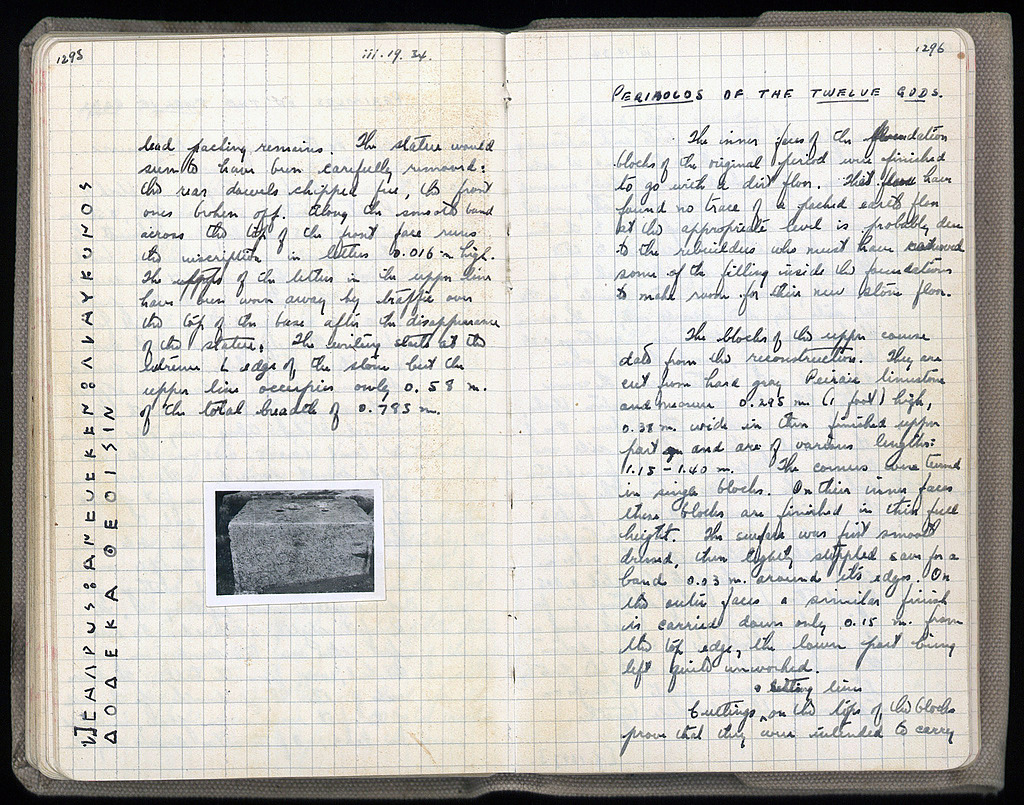 1295
iii.19.34.
lead packing remains. The statue would
seem to have been carefully removed:
the rear dowels chipped free, the front
ones broken off. Along the smooth band
across the top of the front face runs
the inscription in letters 0.016 m high.
The of the letters in the upper line
have been worn away by traffic over
the top of the base after the disappearance
of the statue. The writing starts at the
extreme L edge of the stone but the
upper line occupies only 0.58 m.
of the total breadth of 0.795 m.
ΔΟΔΕΚΑ ΘΕΟΙΣΙΝ
1296
PERIBOLOS OF THE TWELVE GODS.
The inner faces of the foundation
blocks of the original period were finished
to go with a dirt floor. That have
found no trace of a packed earth floor
at the appropriate level is probably due
to the rebuilders who must have removed
some of the filling inside the foundations
to make room for their new stone floor.
The blocks of the upper course
date from the reconstruction. They are
cut from hard gray Peiraic limestone
and measure 0.295 m (1 foot) high,
0.38 m. wide in their finished upper
part and are of various lengths:
1.15 - 1.40 m. The corners were turned
in single blocks. On their inner faces
these blocks are finished in their full
height. The surface was first smooth
dressed, then lightly stippled save for a
band 0.03 m. around its edges. On
the outer faces a similar finish
is carried down only 0.15 m. from
the top edge, the lower part being
left quite unworked.
setting lines
Cuttings ^ on the tops of the blocks
prove that they were intended to carry